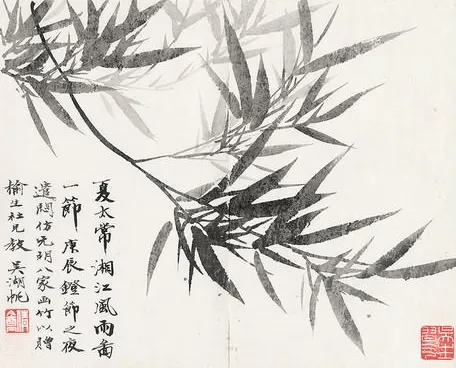 夏太常湘江風雨啚
一節 庚辰鐙節之夜
遣悶仿元明八家画竹以贈
榆生社兄教 吳湖帆